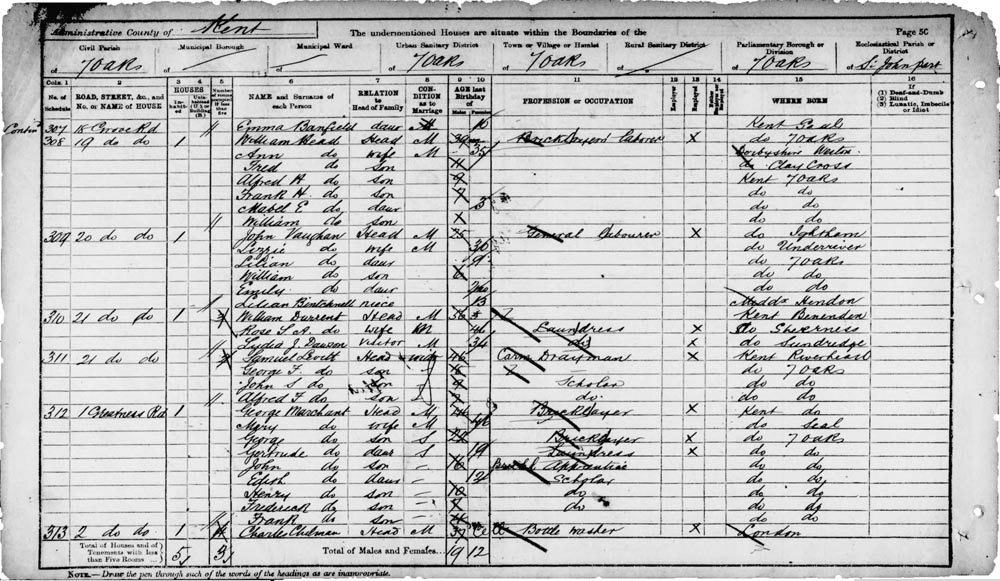 Administrative County of Kent The undermentioned Houses are situate within the Boundaries of the Page 50
Civil Parish Municipal Borough Municipal Ward Urban Sanitary District Town or Village or Hamlet Rural Sanitary District Parliamentary Borough or Division Ecclesiastical Parish or District
of 7Oaks of of of 7Oaks of 7Oaks of of 7Oaks of St John
Cols. 1 2 3 4 5 6 7 8 9 10 11 12 13 14 15 16
No. of Schedule ROAD, STREET, &c., and No. or NAME of HOUSE HOUSES Inhabited Uninhabited (U.) or Building (B.) Number of rooms occupied if less than five NAME and Surname of each Person RELATION to Head of Family CONDITION as to Marriage AGE last Birthday of Males Females PROFESSION or OCCUPATION Employer Employed Neither Employer nor Employed WHERE BORN If (1) Deaf-and-Dumb (2) Blind (3) Lunatic, Imbecile or Idiot
307 18 Rd Emma Banfield daur 10 Kent Seal
308 19 do do 1 William Head Head M 39 Bricklayers Labourer X do 7Oaks
Ann do wife M 35 Derbyshire
Fred do son 11 do Clay Cross
Alfred H. do son 9 Kent 7Oaks
Frank H. do son 7 do do
Mabel E do daur 3 do do
William do son do do
309 20 do do 1 John Vaughan Head M 25 General Labourer X do Ightham
Lizzie do wife M 30 do Underriver
Lilian do daur 9 do 7Oaks
William do son 6 do do
Emily do daur do do
Lilian niece 13 Middx Hendon
310 21 do do 1 William Durrent Head M 56 Kent Benenden
Rose S. A. do Wife M 46 Laundress X do Sheerness
Lydia J. Dawson Visitor M 34 do X do Sundridge
311 21 do do Samuel Head 46 Draftman X Kent Riverhead
George F. do son 15 do 7Oaks
John S do son 9 Scholar do do
Alfred F. do son do do do
312 1 Greatness Rd 1 George Marchant Head M Bricklayer X Kent do
Mary do wife M 46 do Seal
George do son S 22 Bricklayer X do 7Oaks
Gertrude do daur S 19 Laundress X do do
John do son 16 Apprentice do do
Edith do daur 12 Scholar do do
Henry do son 10 do do do
Frederick do son 7 do do do
Frank do son 4 do do
313 2 do do 1 Charles Head M 37 Bottle Washer X London
Total of Houses and of Tenements with less than Five Rooms 5 3 Total of Males and Females 19 12
NOTE.—Draw the pen through such of the words of the headings as are inappropriate.